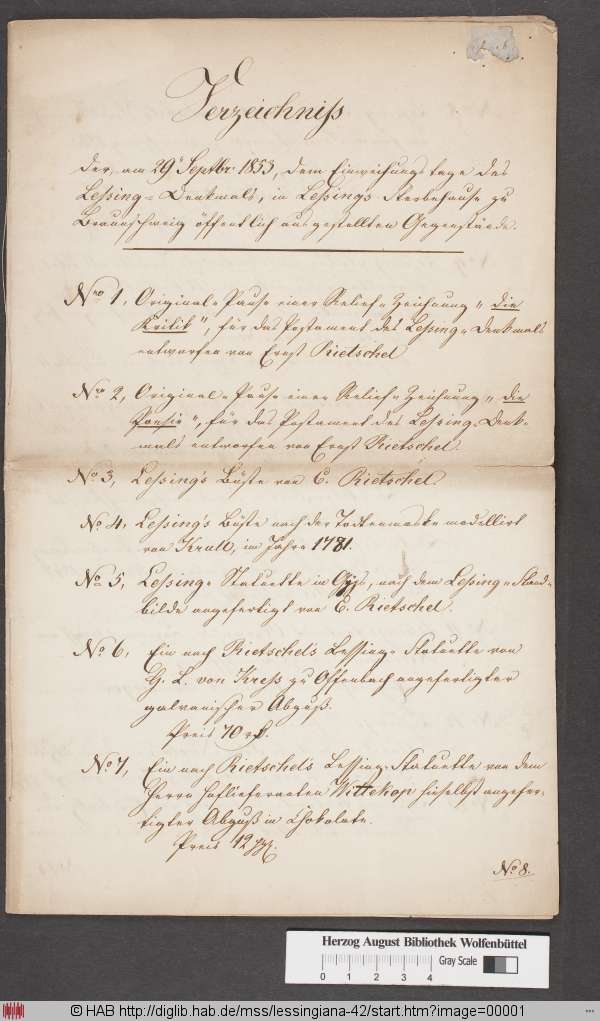 Verzeichniß
der, am 29t Septbr 1853, dem Einweihungstage des
Leßing-Denkmals, in Leßings Sterbehause zu
Braunschweig öffentlich ausgestellten Gegenstände.
No 1, Original-Pause einer Relief-Zeichnung „die
Kritik", für das Postament des Leßing-Denkmals
entworfen von Ernst Rietschel
No 2, Original-Pause einer Relief-Zeichnung „die
Poesie", für das Postament des Leßing-Denk-
mals entworfen von Ernst Rietschel.
No 3, Leßing's Büste von E. Rietschel.
No 4, Leßing's Büste nach der Todtenmaske modellirt
von Krull, im Jahre 1781.
No 5, Leßing-Statuette in Gyps, nach dem Leßing-Stand-
bilde angefertigt von E. Rietschel.
No 6, Ein nach Rietschels Lessing-Statuette von
G. L. von Kreß zu Offenbach angefertigter
galvanischer Abguß.
Preis 70 rf.
No 7, Ein nach Rietschels Lessing-Statuette von dem
Herrn Hoflieferanten Wittekop hieselbst angefer-
tigter Abguß in Chokolate.
Preis 12 ggr.
No 8.
Herzog August Bibliothek Wolfenbüttel
0 1 2 3 4 Gray Scale
© HAB http://diglib.hab.de/mss/lessingiana-42/start.htm?image=00001